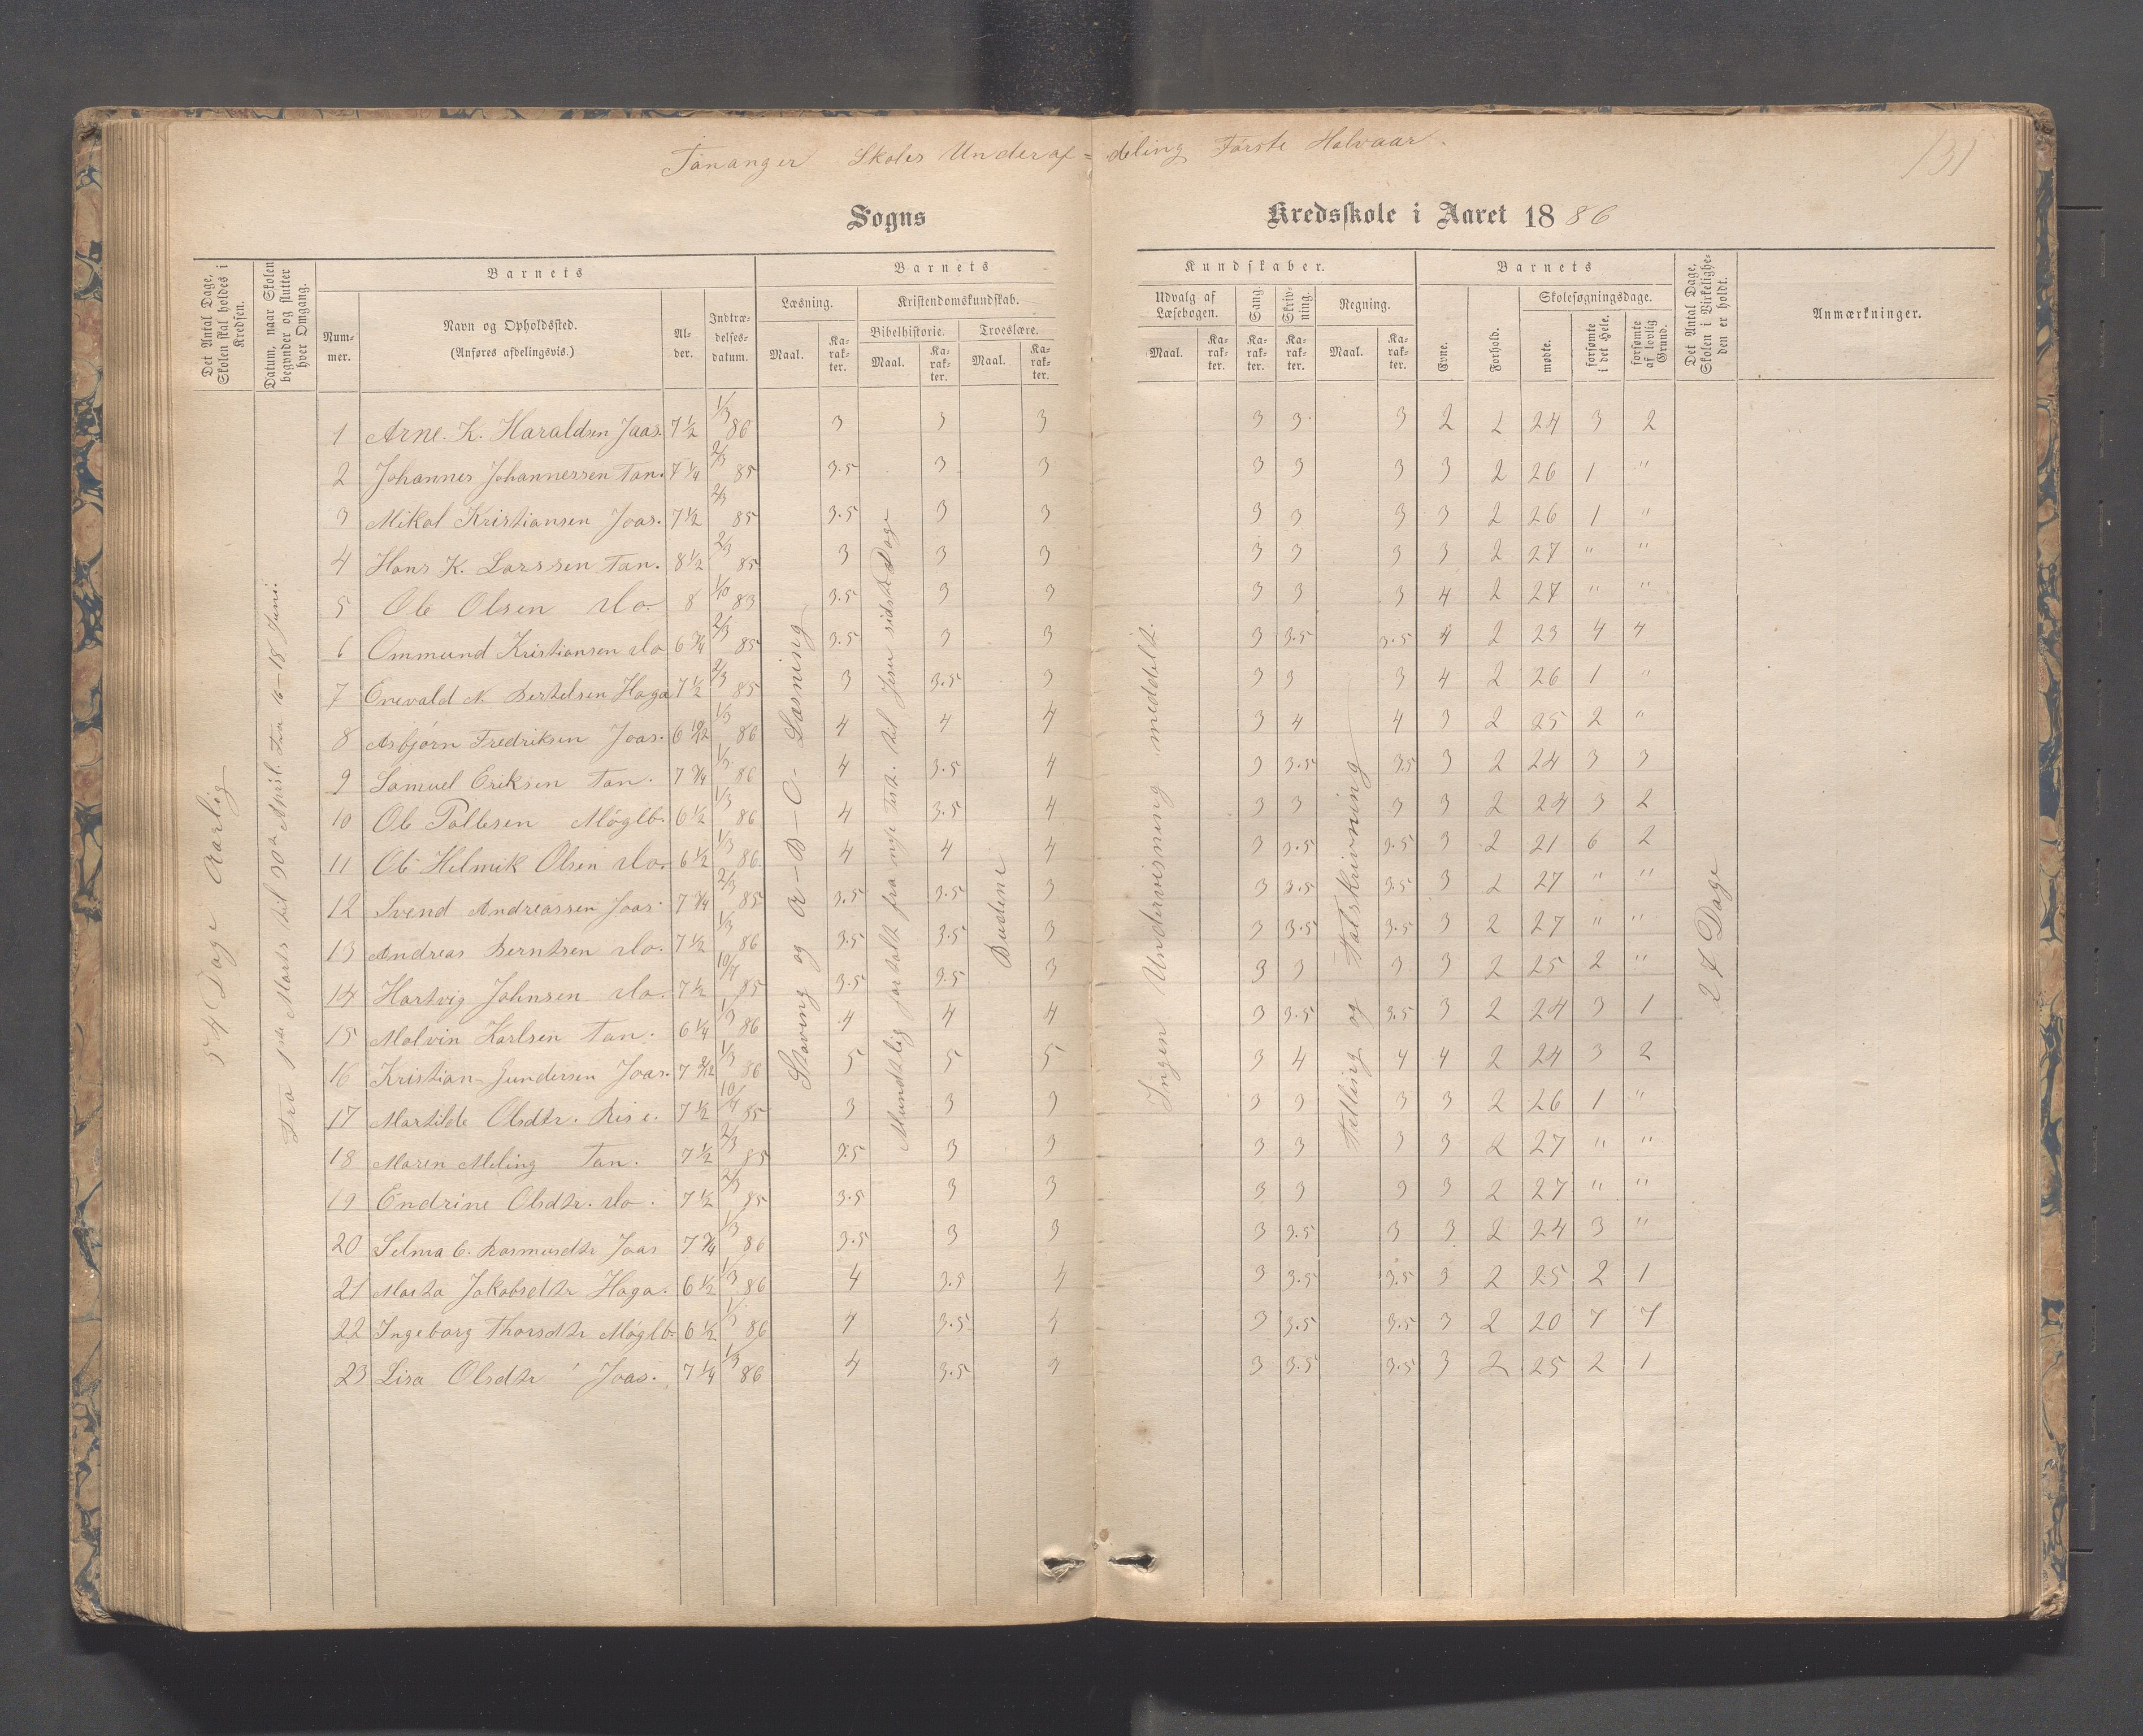 Tananger Skoles Underaf= deling Første Halvaar.
131
Sogns Kredsskole i Aaret 1886
Det Antal Dage, Skolen skal holdes i Kredsen.
Datum, naar Skolen begynder og slutter hver Omgang.
Barnets
Nummer.
Navn og Opholdssted.
(Anføres afdelingsvis.)
Alder.
Indtrædelsesdatum.
Barnets
Læsning.
Maal. Karakter.
Kristendomskundskab.
Bibelhistorie. Troeslære.
Maal. Karakter. Maal. Karakter.
Kundskaber.
Udvalg af Læsebogen.
Maal. Karakter.
Sang. Karakter.
Skrivning. Karakter.
Regning.
Maal. Karakter.
Barnets
Evne. Forhold.
Skolesøgningsdage.
mødte. forsømte i det Hele. forsømte af lovlig Grund.
Det Antal Dage, Skolen i Virkeligheden er holdt.
Anmærkninger.
54 Dage Aarlig
Fra 1ste Marts til 30te April. Fra 16–18 Juni.
Stavning og A–B–C– Læsning
Mundtlig fortalt fra nye Test. til Jesu sidste Dage
Budene
Ingen Undervisning meddelt.
Tælling og Talskrivning
27 Dage
1 Arne K. Haraldsen Jaas. 7 1/2 1/3 86 3 3 3 3 3 3 2 2 24 3 2
2 Johannes Johannessen Tan. 7 1/4 2/3 85 3.5 3 3 3 3 3 3 2 26 1 "
3 Mikal Kristiansen Joas. 7 1/2 2/3 85 3.5 3 3 3 3 3 3 2 26 1 "
4 Hans K. Larssen Tan. 8 1/2 2/3 85 3 3 3 3 3 3 3 2 27 " "
5 Ole Olsen do. 8 1/10 83 3.5 3 3 3 3 3 4 2 27 " "
6 Ommund Kristiansen do 6 3/4 2/3 85 3.5 3 3 3 3.5 3.5 4 2 23 4 4
7 Enevald N. Bertelsen Haga 7 1/2 2/3 85 3 3.5 3 3 3 3 4 2 26 1 "
8 Asbjørn Fredriksen Joas. 6 10/12 1/3 86 4 4 4 3 4 4 3 2 25 2 "
9 Samuel Eriksen Tan. 7 3/4 1/3 86 4 3.5 4 3 3.5 3.5 3 2 24 3 3
10 Ole Pallesen Møglb. 6 1/2 1/3 86 4 3.5 4 3 3 3 3 2 24 3 2
11 Ole Helmik Olsen do. 6 1/2 1/3 86 4 4 4 3 3.5 3.5 3 2 21 6 2
12 Svend Andreassen Joas. 7 3/4 2/3 85 3.5 3.5 3 3 3.5 3.5 3 2 27 " "
13 Andreas Berntsen do. 7 1/2 1/3 86 3.5 3.5 3 3 3.5 3.5 3 2 27 " "
14 Hartvig Johnsen do. 7 1/2 10/7 85 3.5 3.5 3 3 3 3 3 2 25 2 "
15 Malvin Karlsen Tan. 6 1/4 1/3 86 4 4 4 3 3.5 3.5 3 2 24 3 1
16 Kristian Gundersen Joas. 7 2/12 1/3 86 5 5 5 3 4 4 4 2 24 3 2
17 Martilde Olsdtr. Risе. 7 1/2 10/7 85 3 3 3 3 3 3 3 2 26 1 "
18 Maren Meling Tan. 7 1/2 2/3 85 3.5 3 3 3 3 3 3 2 27 " "
19 Endrine Olsdtr. do. 7 1/2 2/3 85 3.5 3 3 3 3 3 3 2 27 " "
20 Selma C. Rasmusdtr Joas 7 3/4 1/3 86 3.5 3 3 3 3.5 3 3 2 24 3 "
21 Marta Jakobsdtr Haga. 6 1/2 1/3 86 4 3.5 4 3 3.5 3.5 3 2 25 2 1
22 Ingeborg Thorsdtr Møglb. 6 1/2 1/3 86 4 3.5 4 3 3.5 3.5 3 2 20 7 7
23 Lisa Olsdtr Joas. 7 1/4 1/3 86 4 3.5 4 3 3.5 3.5 3 2 25 2 1